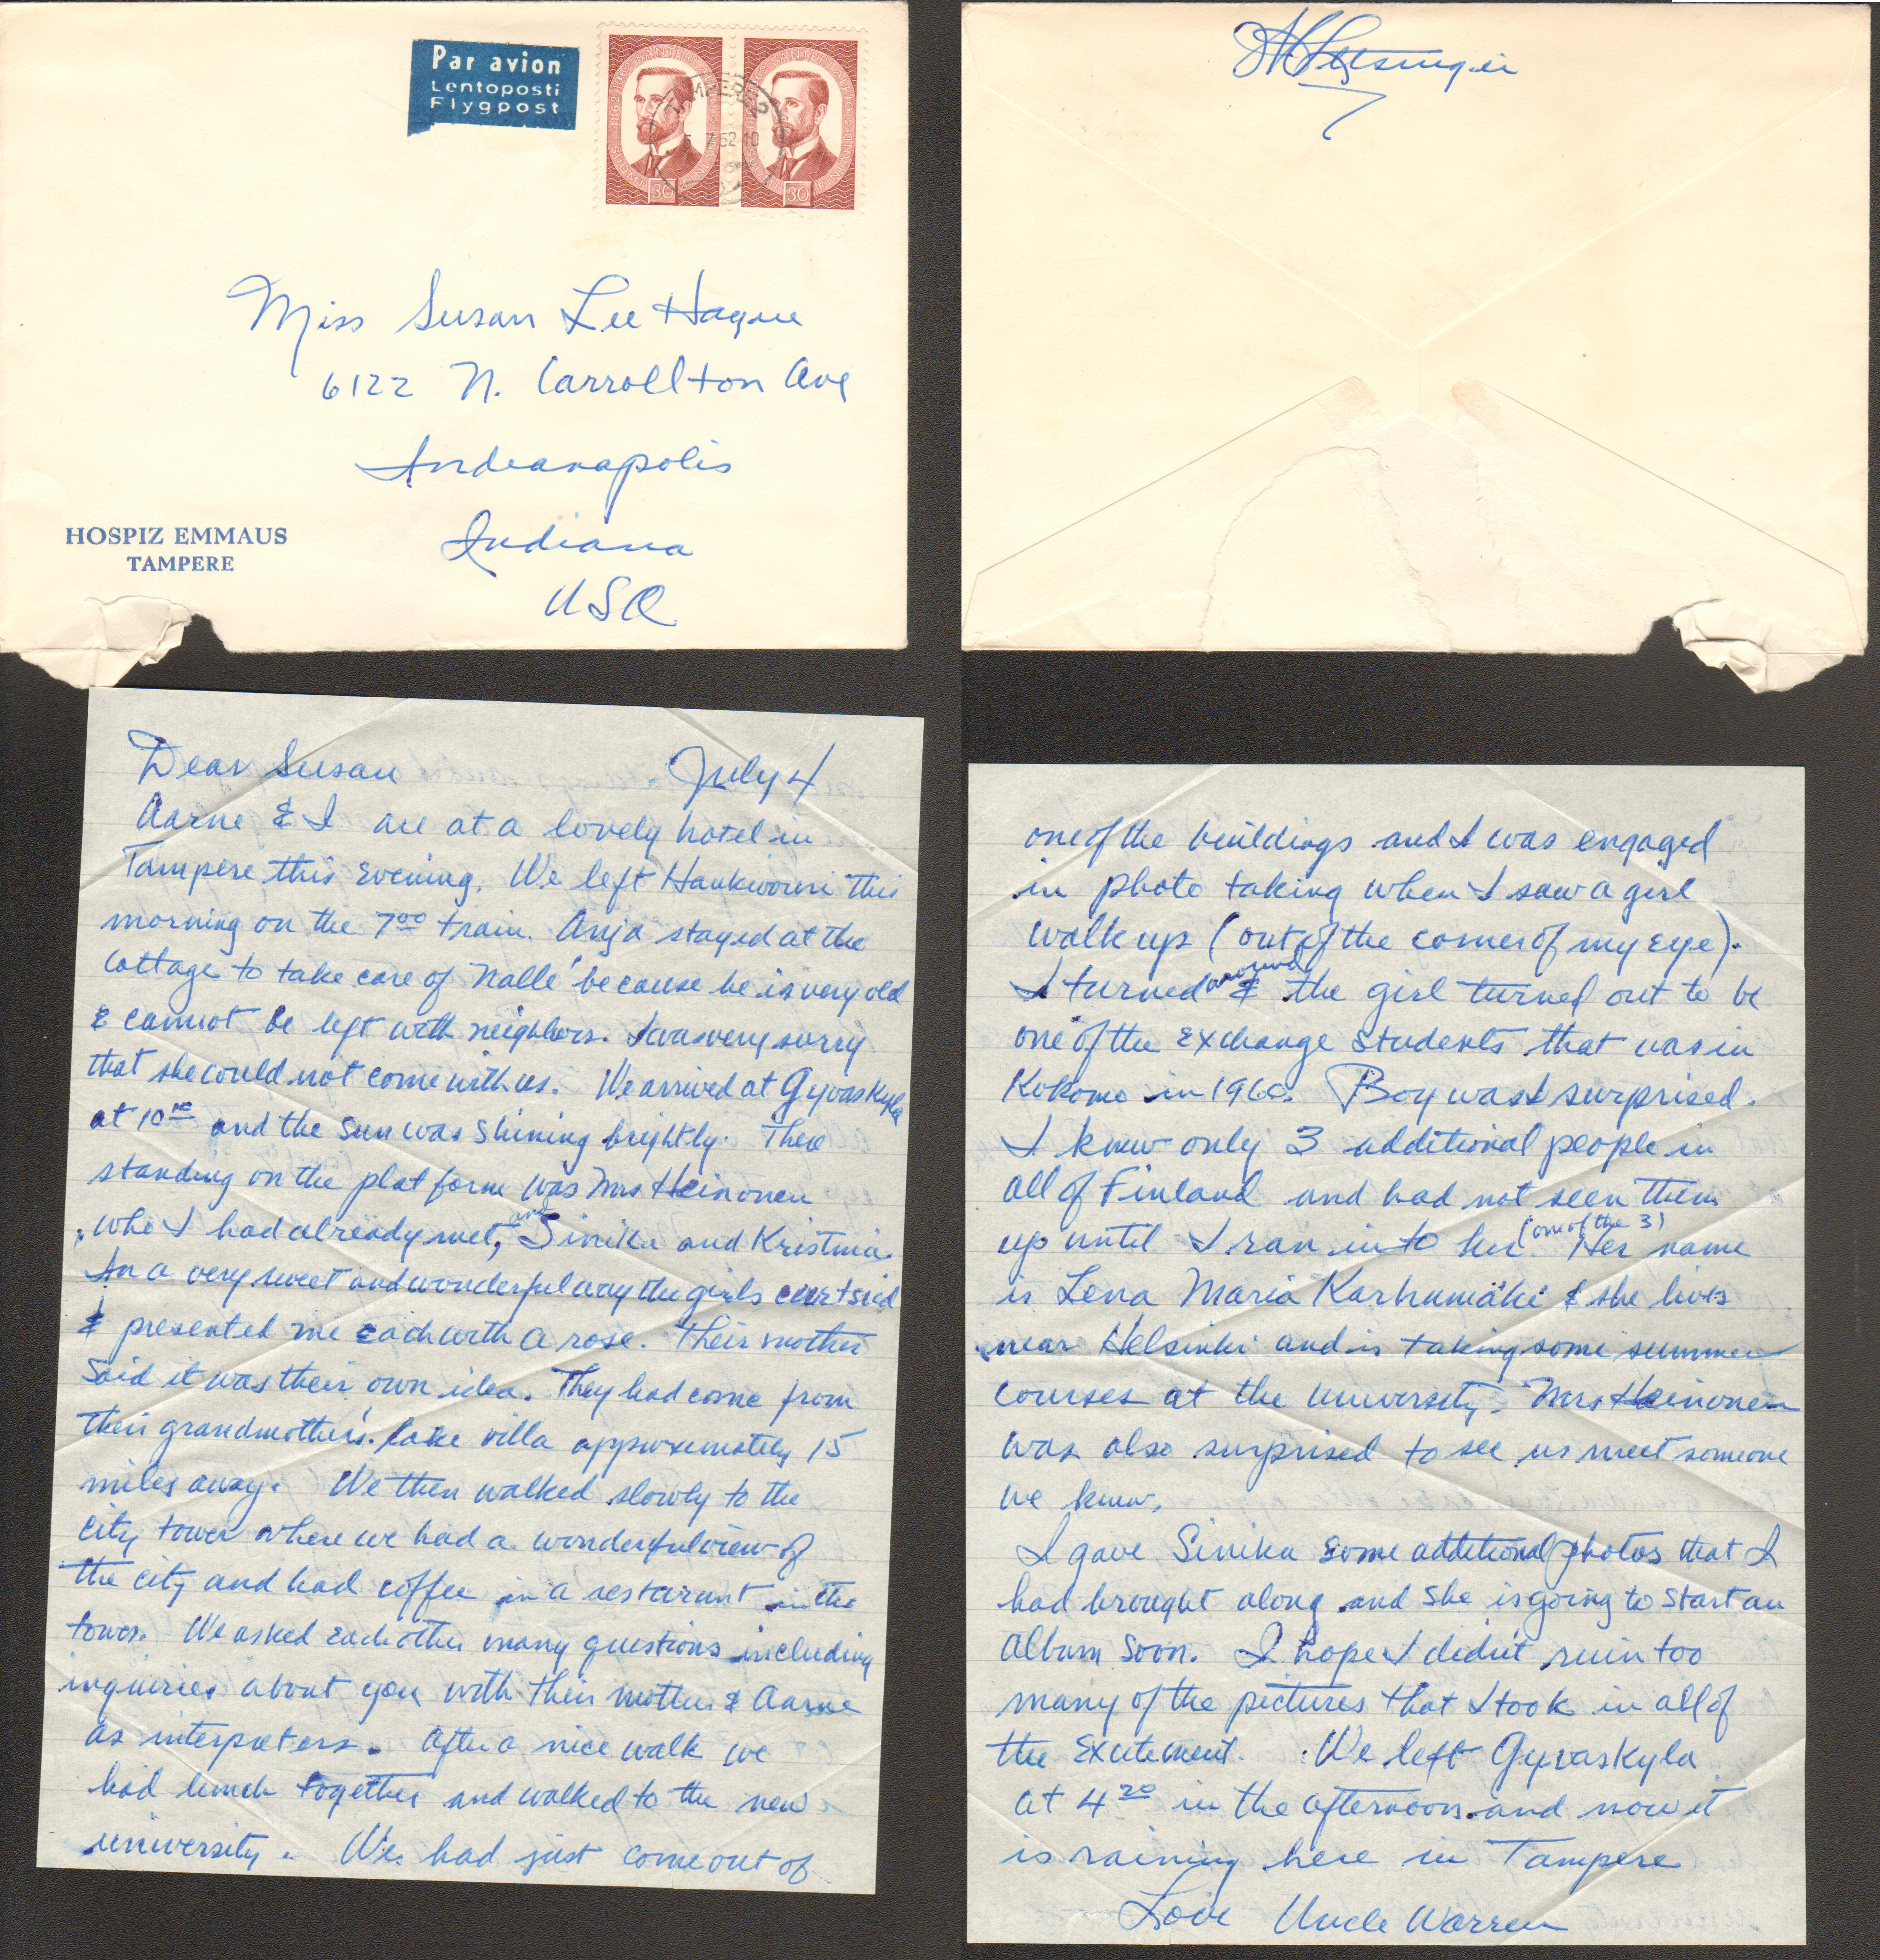 Par avion
Lentoposti
Flygpost
TAMPERE
5. 7.62.10
30
30
Miss Susan Lee Hague
6122 N. Carrollton Ave
Indianapolis
Indiana
USA
HOSPIZ EMMAUS
TAMPERE
Dear Susan July 4
Aarne & I are at a lovely hotel in
Tampere this evening. We left Haukivouri this
morning on the 7 00 train. Anja stayed at the
cottage to take care of Nalle' because he is very old
& cannot be left with neighbors. I was very sorry
that she could not come with us. We arrived at Gyvaskyla
at 10 and the sun was shining brightly. There
standing on the platform was Mrs Heinonen
who I had already met, and Sinika and Kristina.
In a very sweet and wonderful way the girls curtsied
& presented me each with a rose. Their mother
said it was their own idea. They had come from
their grandmother's lake villa approximately 15
miles away. We then walked slowly to the
city tower where we had a wonderful view of
the city and had coffee in a restaurant in the
tower. We asked each other many questions including
inquiries about you with their mother & Aarne
as interpreters. After a nice walk we
had lunch together and walked to the new
university. We had just come out of
one of the buildings and I was engaged
in photo taking when I saw a girl
walk up (out of the corner of my eye).
I turned around & the girl turned out to be
one of the exchange students that was in
Kokomo in 1960. Boy was I surprised.
I knew only 3 additional people in
all of Finland and had not seen them
up until I ran into her (one of the 3). Her name
is Lena Maria Karhumäki & she lives
near Helsinki and is taking some summer
courses at the university. Mrs Heinonen
was also surprised to see us meet someone
we knew.
I gave Sinika some additional photos that I
had brought along and she is going to start an
album soon. I hope I didn't ruin too
many of the pictures that I took in all of
the excitement. We left Gyvaskyla
at 4 20 in the afternoon and now it
is raining here in Tampere
Love Uncle Warren